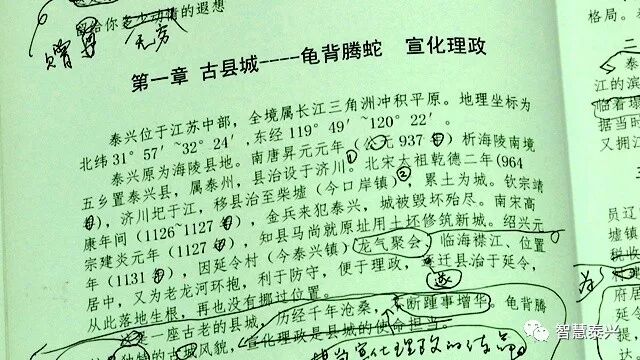 留给你多少动情的遐想
无穷
第一章 古县城----龟背腾蛇 宣化理政
泰兴位于江苏中部，全境属长江三角洲冲积平原。地理坐标为
北纬31°57′~32°24′,东经119°49′~120°22′。
泰兴原为海陵县地。南唐昇元元年（公元937年）析海陵南境
五乡置泰兴县，属泰州，县治设于济川。北宋太祖乾德二年(964
年)，济川圮于江，移县治至柴墟（今口岸镇），累土为城。钦宗靖
康年间（1126~1127年），金兵来犯泰兴，城被毁坏殆尽。南宋高
宗建炎元年（1127年），知县马尚就原址用土坯修筑新城。绍兴元
年（1131年），因延令村（今泰兴镇）龙气聚会，临海襟江、位置
居中，又为老龙河环抱，利于防守，便于理政，迁县治于延令，
遂
从此落地生根，再也没有挪过位置。
是一座古老的县城，历经千年沧桑，断踵事增华。龟背腾
独特的古城风貌，宣化理政是县城的使命担当。
格局。
泰
江的滨
临着
据当时
又拥江
员辽
墟镇
税收
府居
延令
图
智慧泰兴